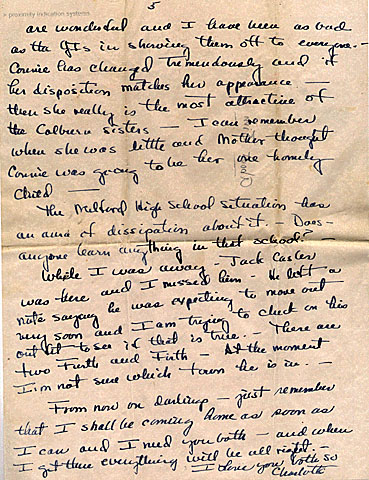 5
x proximity indication systems
are wonderful and I have been as bad
as the GIs in showing them off to everyone.-
Connie has changed tremendously and if
her disposition matches her appearance -
then she really is the most attractive of
the Colburn sisters - I can remember
when she was little and Mother thought
Connie was going to be her one homely
child -
The Milford High School situation has
an aura of dissipation about it. - Does-
anyone learn anything in that school? -
While I was away - Jack
was here and I missed him - He left a
note saying he was expecting to move out
very soon and I am trying to check on his
outfit to see if that is true. - There are
two Furth and Firth - At the moment
I'm not sure which town he is in. -
From now on darling - just remember
that I shall be coming home as soon as
I can and I need you both - and when
I get there everything will be all right. -
I love you both so
Charlotte